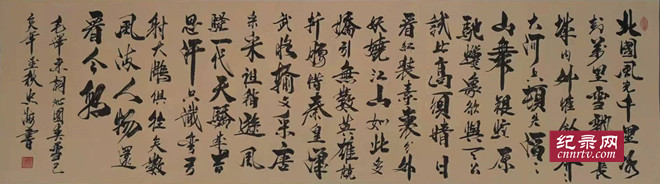 北國風光千里冰
封萬里雪飄望長
城內外惟餘莽
大河上下頓失滔〻
山舞銀蛇原
馳蠟象欲與天公
試比高須晴日
看紅裝素裹分外
妖嬈江山如此多
嬌引無數英雄競
折腰惜秦皇漢
武略輸文采唐
宗宋祖稍遜風
騷一代天驕成吉
思汗只識彎弓
射大俱往矣數
風流人物還
看今朝
毛澤東詞沁園春雪
書
纪录网
cnnrtv.com